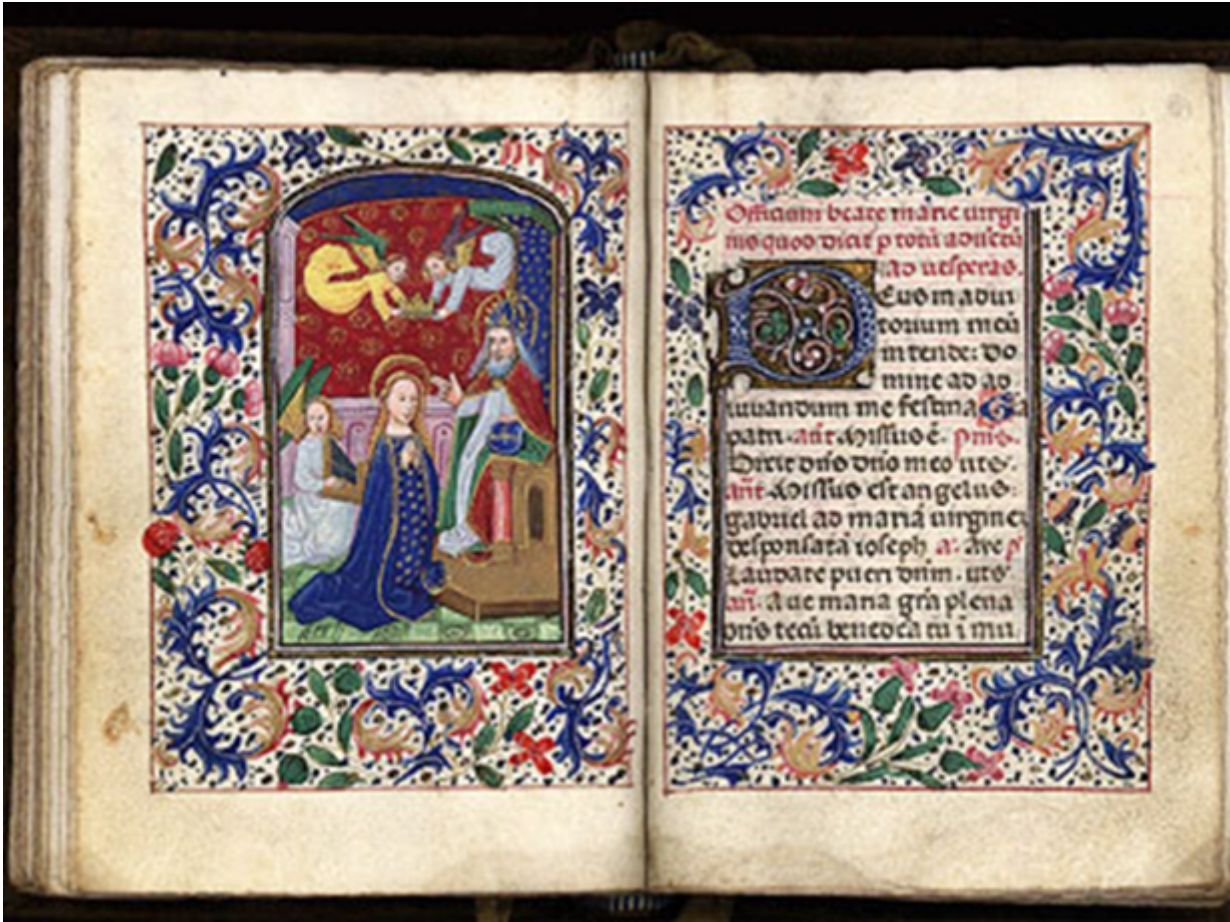 Officium beate marie uirgi
nis quod dicit p totū aduētū
ad uesperas.
Deus in adiu
torium meū
intende: do
mine ad ad
iuuandum me festina G̃a
patri. añt. Missus ē. pm̄s.
Dixit dn̄s dn̄o meo uts.
añt. Missus est angelus:
gabriel ad mariā uirginē
desponsatā ioseph a. aue p̄
Laudate pueri dn̄m. uts
añ. aue maria gr̃a plena
dn̄s tecū benedcā tū ī mu